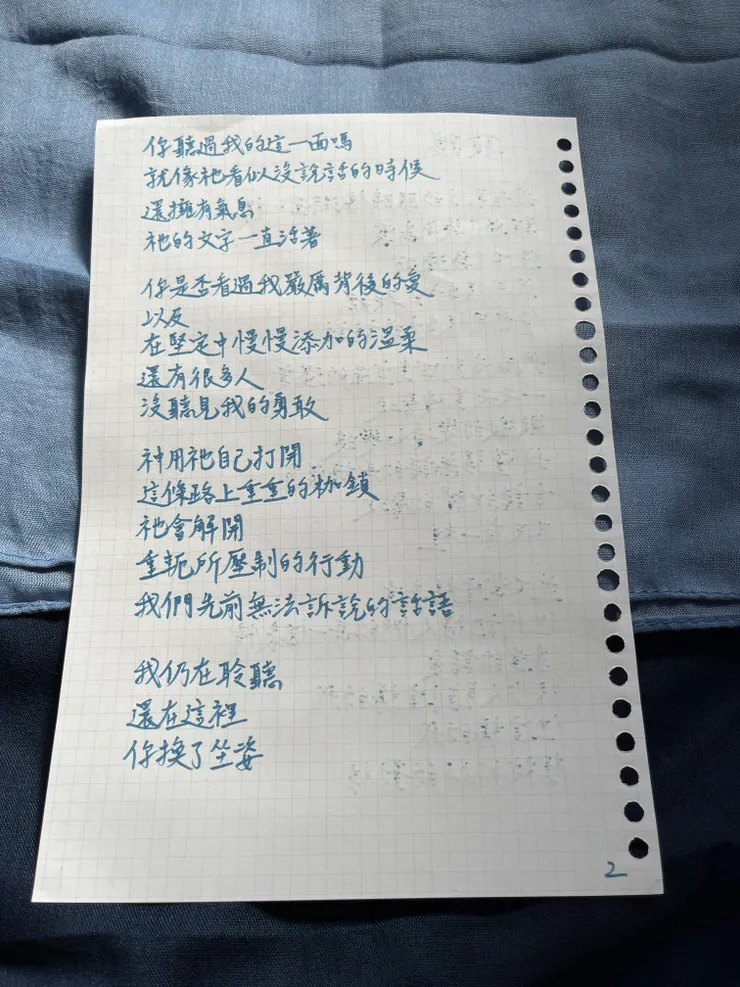 你聽過我的這一面嗎
就像祂看似沒說話的時候
還擁有氣息
祂的文字一直活著
你是否看過我嚴厲背後的愛
以及
在堅定中慢慢添加的溫柔
還有很多人
沒聽見我的勇敢
神用祂自己打開
這條路上重重的枷鎖
祂會解開
重軛所壓制的行動
我們先前無法訴說的話語
我仍在聆聽
還在這裡
你換了坐姿
2